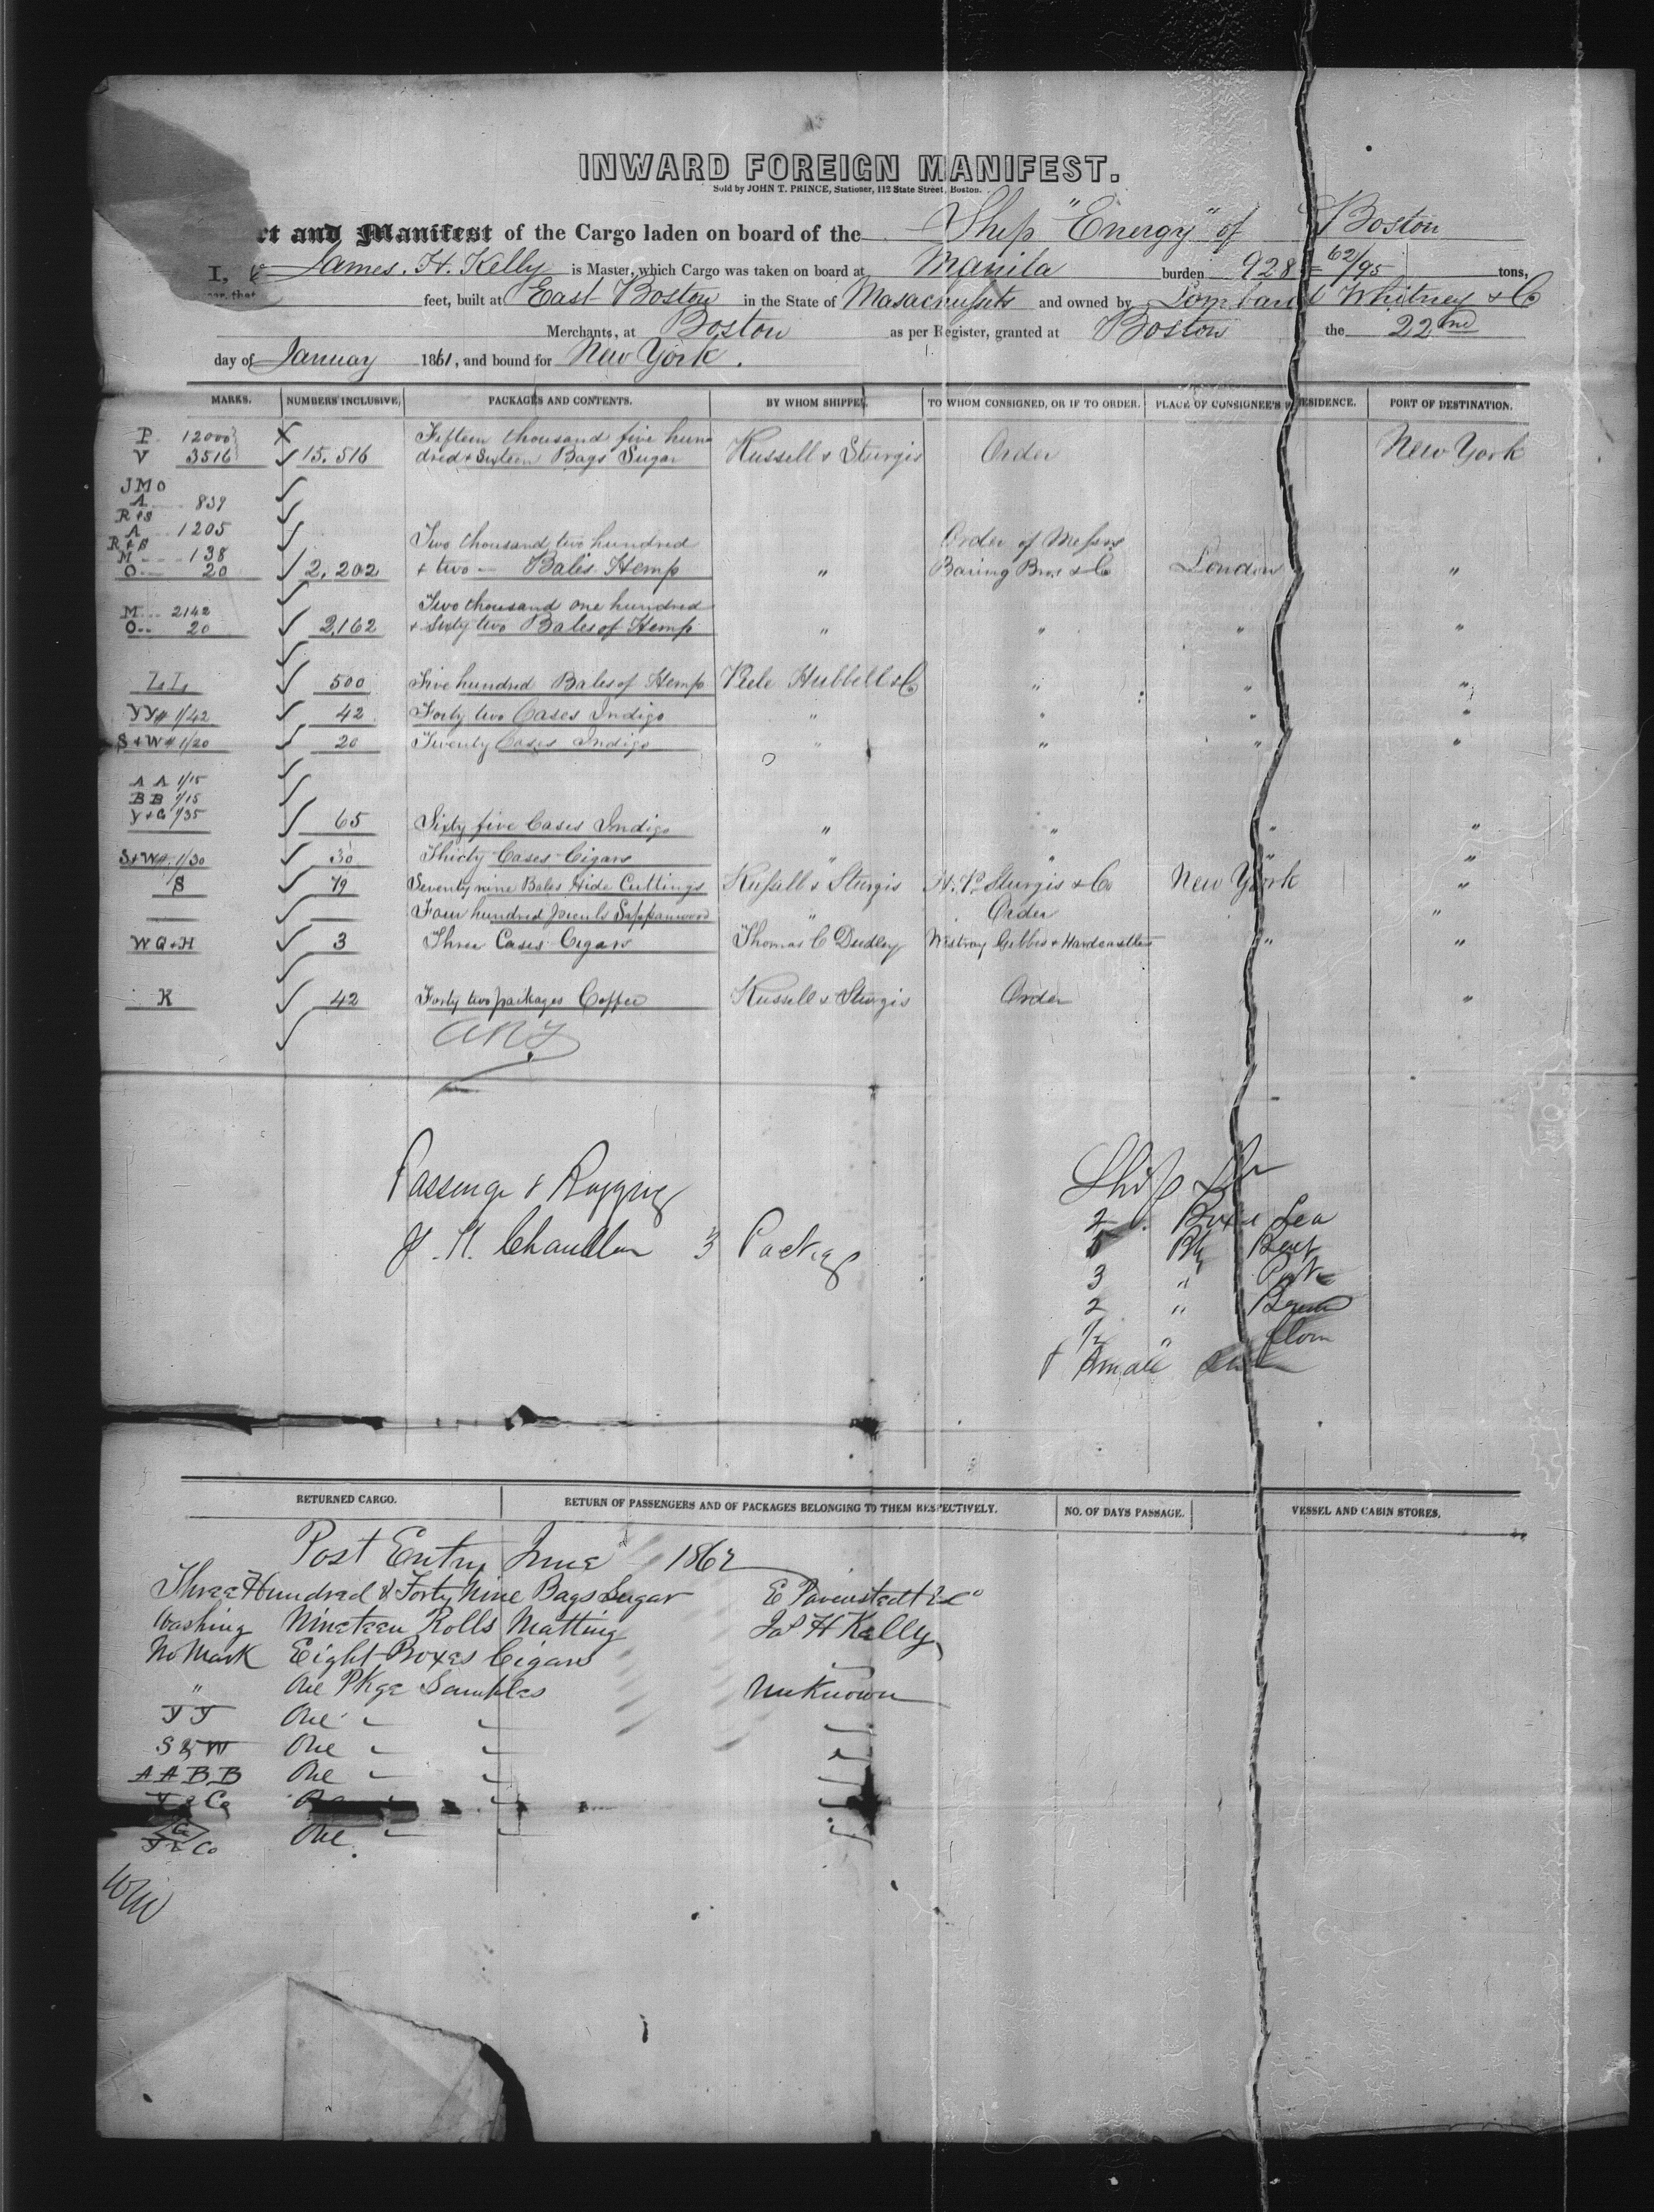 INWARD FOREIGN MANIFEST.
Sold by JOHN T. PRINCE, Stationer, 112 State Street, Boston.
and Manifest of the Cargo laden on board of the Ship "Energy" of Boston
I, James. H. Kelly is Master, which Cargo was taken on board at Manila burden 928 = 62/95 tons,
feet, built at East Boston in the State of Masachusets and owned by Lombard Whitney & Co
Merchants, at Boston as per Register, granted at Boston the 22nd
day of January 1861, and bound for New York.
MARKS. NUMBERS INCLUSIVE, PACKAGES AND CONTENTS. BY WHOM SHIPPED. TO WHOM CONSIGNED, OR IF TO ORDER. PLACE OF CONSIGNEE'S RESIDENCE. PORT OF DESTINATION.
P. 12000 Fifteen thousand five hun
V 3516 15,516 dred & Sixteen Bags Sugar Russell & Sturgis Order New York
JMO
A 839
R&S
A 1205
R&S Two thousand two hundred Order of Messrs
M 138
O 20 2,202 & two Bales Hemp " Baring Bros & Co London "
Two thousand one hundred
M 2142
O 20 2,162 & Sixty two Bales of Hemp " " " "
LL 500 Five hundred Bales of Hemp Peele Hubbell & Co " " "
YY# 1/42 42 Forty two Cases Indigo " " " "
S&W# 1/20 20 Twenty Cases Indigo " " " "
AA 1/15
BB 1/15
Y&C 1/35 65 Sixty five Cases Indigo " " " "
S&W#. 1/30 30 Thirty Cases Cigars " " " "
S 79 Seventy nine Bales Hide Cuttings Russell & Sturgis H. P. Sturgis & Co New York "
Four hundred piculs Sappanwood " Order "
WG&H 3 Three Cases Cigars Thomas C Dudley Westray Gibbes & Hardcastle " "
K 42 Forty two packages Coffee Russell & Sturgis Order "
Passenge & Baggage
H. Chandler 3 Packag
Ship
2 Boxe Tea
5 Bbl Beef
3 " Pork
2 "
1/2 " flour
& Small
RETURNED CARGO. RETURN OF PASSENGERS AND OF PACKAGES BELONGING TO THEM RESPECTIVELY. NO. OF DAYS PASSAGE. VESSEL AND CABIN STORES.
Post Entry June 1862
Three Hundred & Forty Nine Bags Sugar E Pavenstedt & Co
Washing Nineteen Rolls Matting Jas H Kelly
No Mark Eight Boxes Cigars
" One Pkge Samples unKnown
One
S & W One
AABB One
& Co
G
& Co One